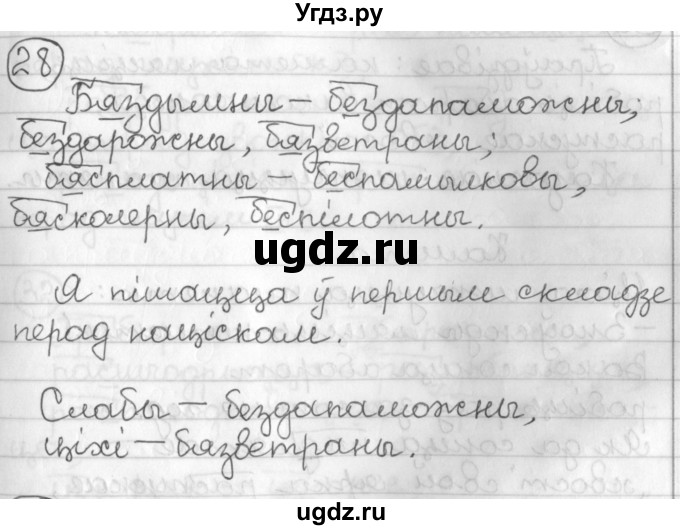 Угдз.ру
28
Бяздымны – бездапаможны;
бездарожны, бязветраны;
бясплатны – беспамылковы,
бясколерны, беспілотны.
ugdz.ru
Я пішацца ў першым складзе
перад націскам.
Слабы – бездапаможны,
ціхі – бязветраны.
ugdz.ru